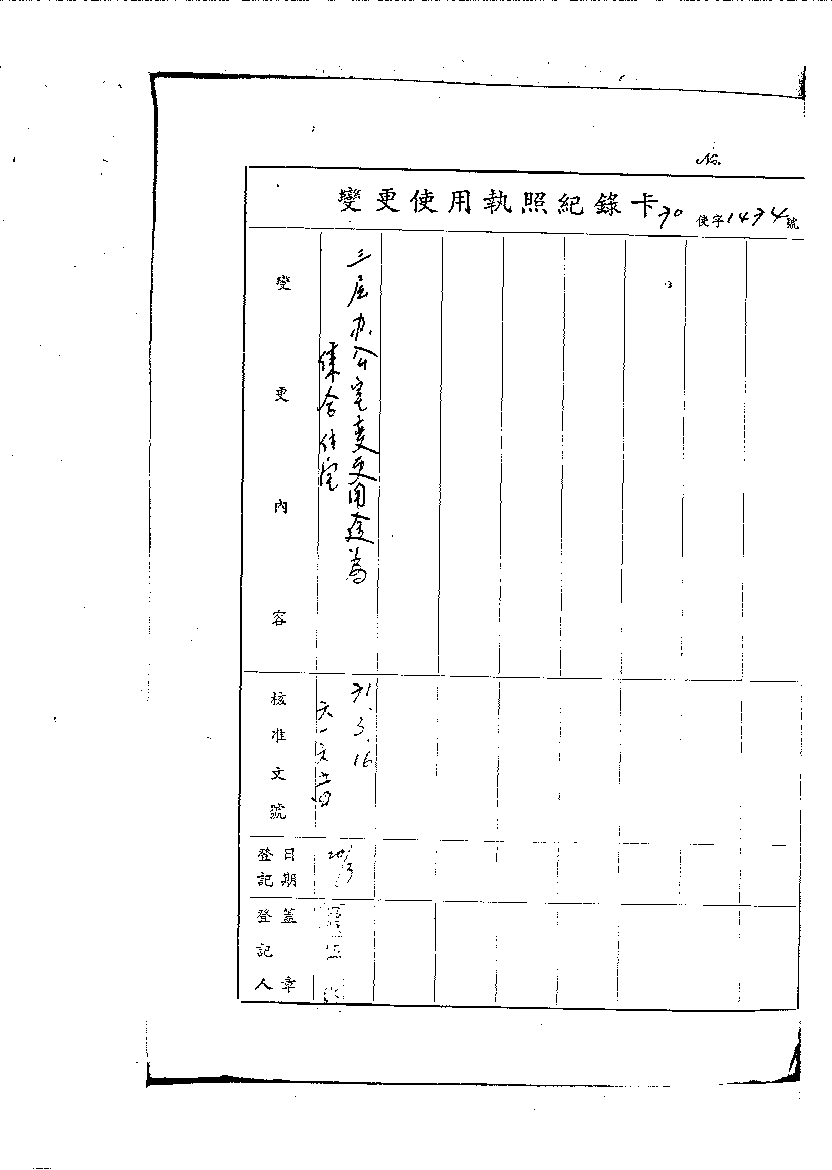 No.
變更使用執照紀錄卡 70 使字1474號
變更內容
三层办公室变更用途為
集合住宅
核准文號
71.3.16
六一六五四
登記日期
登記人蓋章